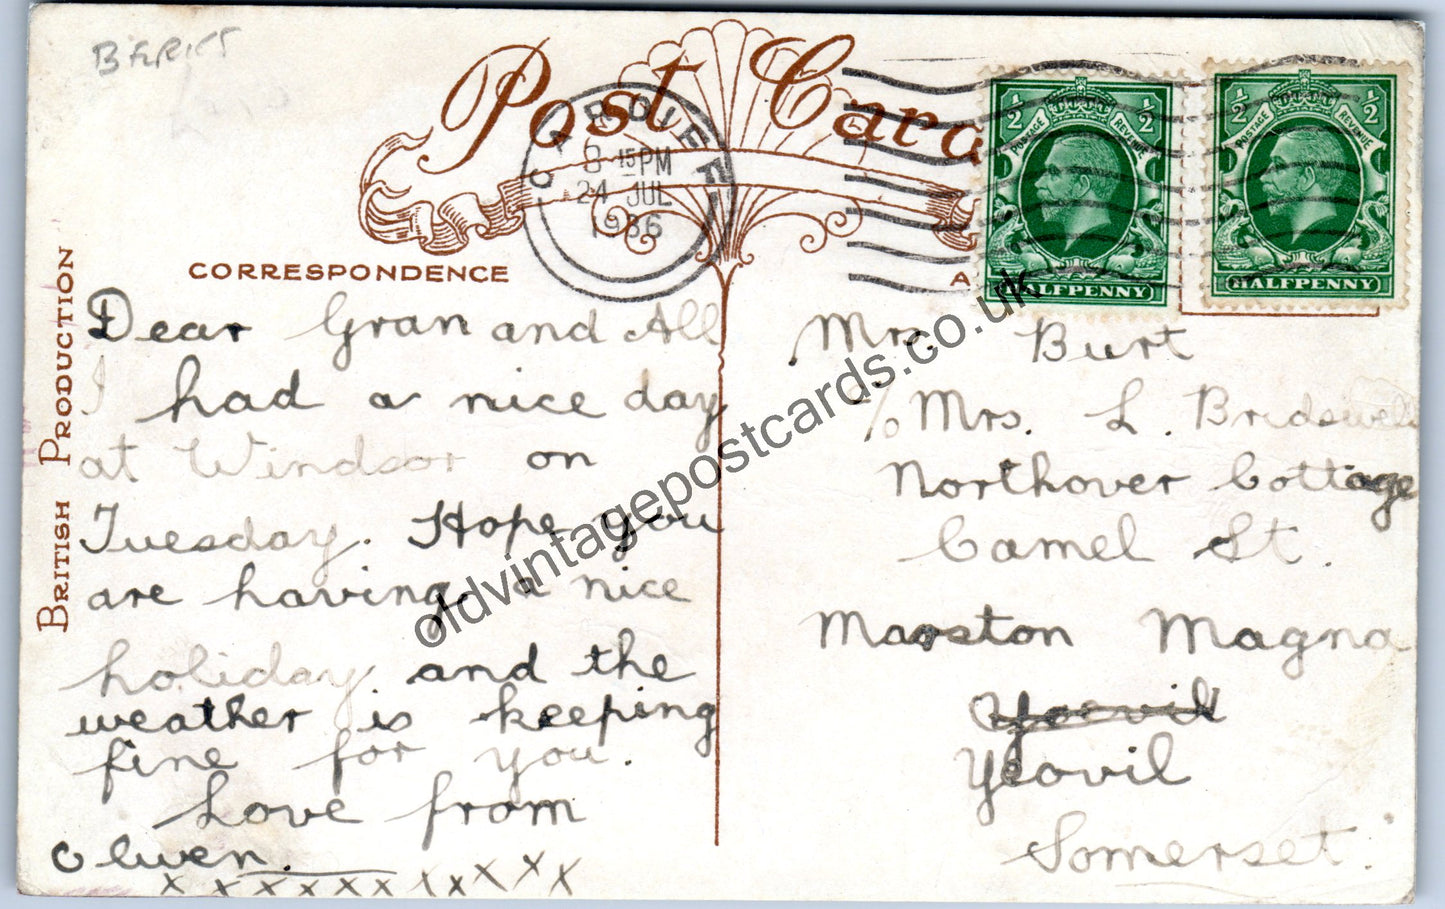 BERKS
Post Card
CARDIFF
8 15 PM
24 JUL
1936
1/2 1/2
POSTAGE REVENUE
HALFPENNY
1/2 1/2
POSTAGE REVENUE
HALFPENNY
CORRESPONDENCE
BRITISH PRODUCTION
Dear Gran and All
I had a nice day
at Windsor on
Tuesday. Hope you
are having a nice
holiday and the
weather is keeping
fine for you.
Love from
Olwen.
x x x x x x x x x x x
Mrs. Burt
c/o Mrs. L. Bridswell
Northover Cottage
Camel St.
Marston Magna
Yeovil
Somerset
oldvintagepostcards.co.uk